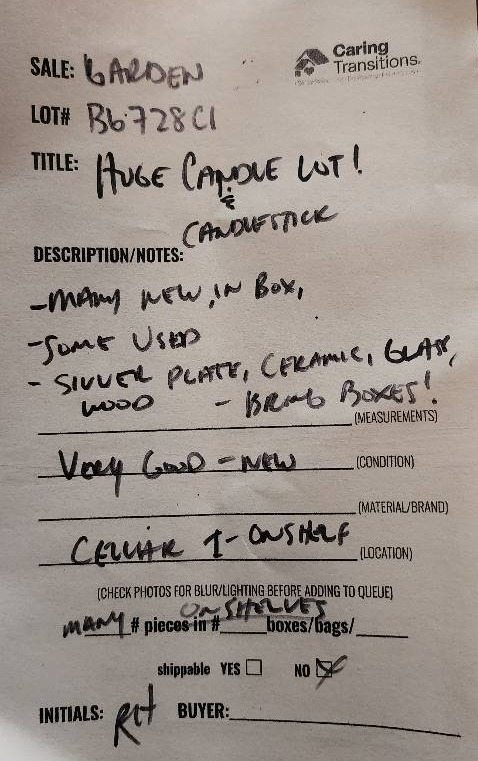 Caring
Transitions.
SALE: GARDEN
LOT# Bb728C1
TITLE: HUGE CANDLE LOT!
&
CANDLESTICK
DESCRIPTION/NOTES:
- MANY NEW, IN BOX,
- SOME USED
- SILVER PLATE, CERAMIC, GLASS,
WOOD - BRING BOXES!
(MEASUREMENTS)
Very Good - NEW (CONDITION)
(MATERIAL/BRAND)
CELLAR 1 - ON SHELF (LOCATION)
(CHECK PHOTOS FOR BLUR/LIGHTING BEFORE ADDING TO QUEUE)
ON SHELVES
MANY # pieces in # boxes/bags/
shippable YES ☐ NO ☒
INITIALS: RH BUYER: